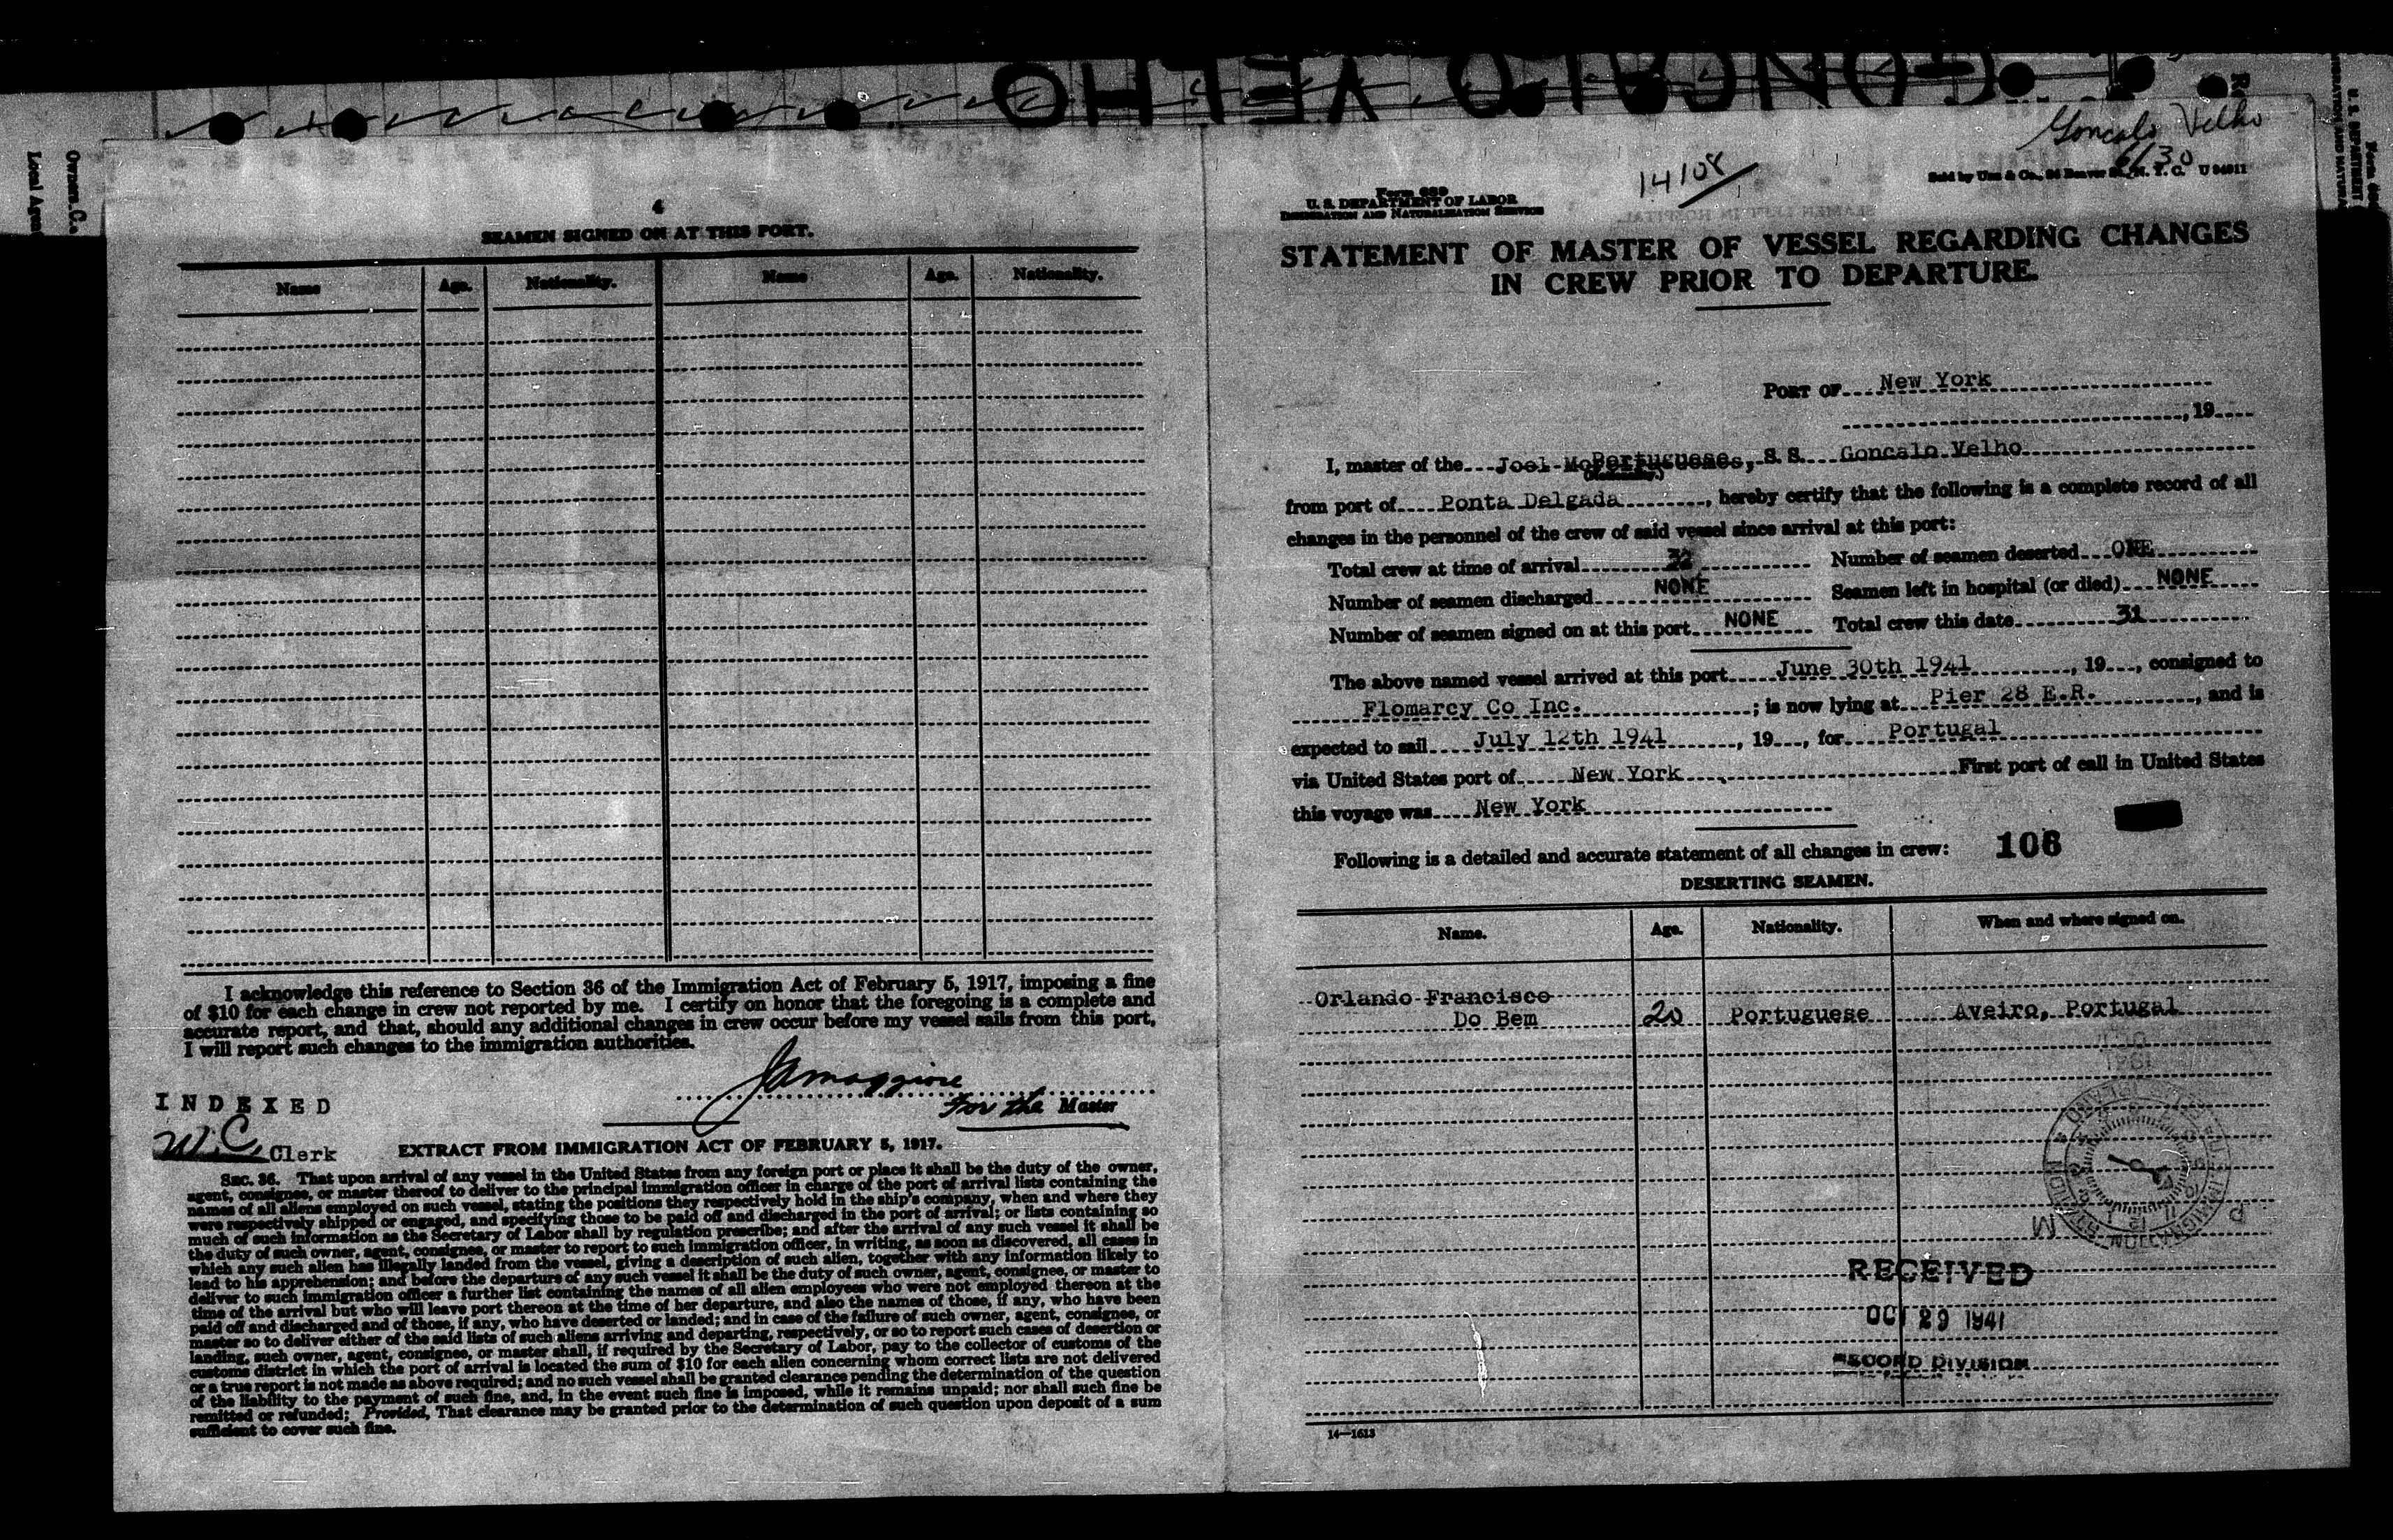 GONCALO VELHO
Owners C.
Local Agen
4
SEAMEN SIGNED ON AT THIS PORT.
Name Age. Nationality. Name Age. Nationality.
I acknowledge this reference to Section 36 of the Immigration Act of February 5, 1917, imposing a fine
of $10 for each change in crew not reported by me. I certify on honor that the foregoing is a complete and
accurate report, and that, should any additional changes in crew occur before my vessel sails from this port,
I will report such changes to the immigration authorities.
Jamaggiore
For the Master
INDEXED
W.C. Clerk
EXTRACT FROM IMMIGRATION ACT OF FEBRUARY 5, 1917.
SEC. 36. That upon arrival of any vessel in the United States from any foreign port or place it shall be the duty of the owner,
agent, consignee, or master thereof to deliver to the principal immigration officer in charge of the port of arrival lists containing the
names of all aliens employed on such vessel, stating the positions they respectively hold in the ship's company, when and where they
were respectively shipped or engaged, and specifying those to be paid off and discharged in the port of arrival; or lists containing so
much of such information as the Secretary of Labor shall by regulation prescribe; and after the arrival of any such vessel it shall be
the duty of such owner, agent, consignee, or master to report to such immigration officer, in writing, as soon as discovered, all cases in
which any such alien has illegally landed from the vessel, giving a description of such alien, together with any information likely to
lead to his apprehension; and before the departure of any such vessel it shall be the duty of such owner, agent, consignee, or master to
deliver to such immigration officer a further list containing the names of all alien employees who were not employed thereon at the
time of the arrival but who will leave port thereon at the time of her departure, and also the names of those, if any, who have been
paid off and discharged and of those, if any, who have deserted or landed; and in case of the failure of such owner, agent, consignee, or
master so to deliver either of the said lists of such aliens arriving and departing, respectively, or so to report such cases of desertion or
landing, such owner, agent, consignee, or master shall, if required by the Secretary of Labor, pay to the collector of customs of the
customs district in which the port of arrival is located the sum of $10 for each alien concerning whom correct lists are not delivered
or a true report is not made as above required; and no such vessel shall be granted clearance pending the determination of the question
of the liability to the payment of such fine, and, in the event such fine is imposed, while it remains unpaid; nor shall such fine be
remitted or refunded; Provided, That clearance may be granted prior to the determination of such question upon deposit of a sum
sufficient to cover such fine.
Goncalo Velho
6/30
14108
Form 689
U. S. DEPARTMENT OF LABOR
IMMIGRATION AND NATURALIZATION SERVICE
Sold by Unz & Co., 24 Beaver St., N. Y. C. U 94911
STATEMENT OF MASTER OF VESSEL REGARDING CHANGES
IN CREW PRIOR TO DEPARTURE.
PORT OF New York
, 19
I, master of the Portuguese, S. S. Goncalo Velho
(Nationality.)
from port of Ponta Delgada, hereby certify that the following is a complete record of all
changes in the personnel of the crew of said vessel since arrival at this port:
Total crew at time of arrival 32 Number of seamen deserted ONE
Number of seamen discharged NONE Seamen left in hospital (or died) NONE
Number of seamen signed on at this port NONE Total crew this date 31
The above named vessel arrived at this port June 30th 1941, 19 , consigned to
Flomarcy Co Inc. ; is now lying at Pier 28 E.R. , and is
expected to sail July 12th 1941 , 19 , for Portugal
via United States port of New York First port of call in United States
this voyage was New York
Following is a detailed and accurate statement of all changes in crew: 106
DESERTING SEAMEN.
Name. Age. Nationality. When and where signed on.
Orlando Francisco
Do Bem 20 Portuguese Aveiro, Portugal
RECEIVED
OCT 29 1941
RECORD DIVISION
14—1613